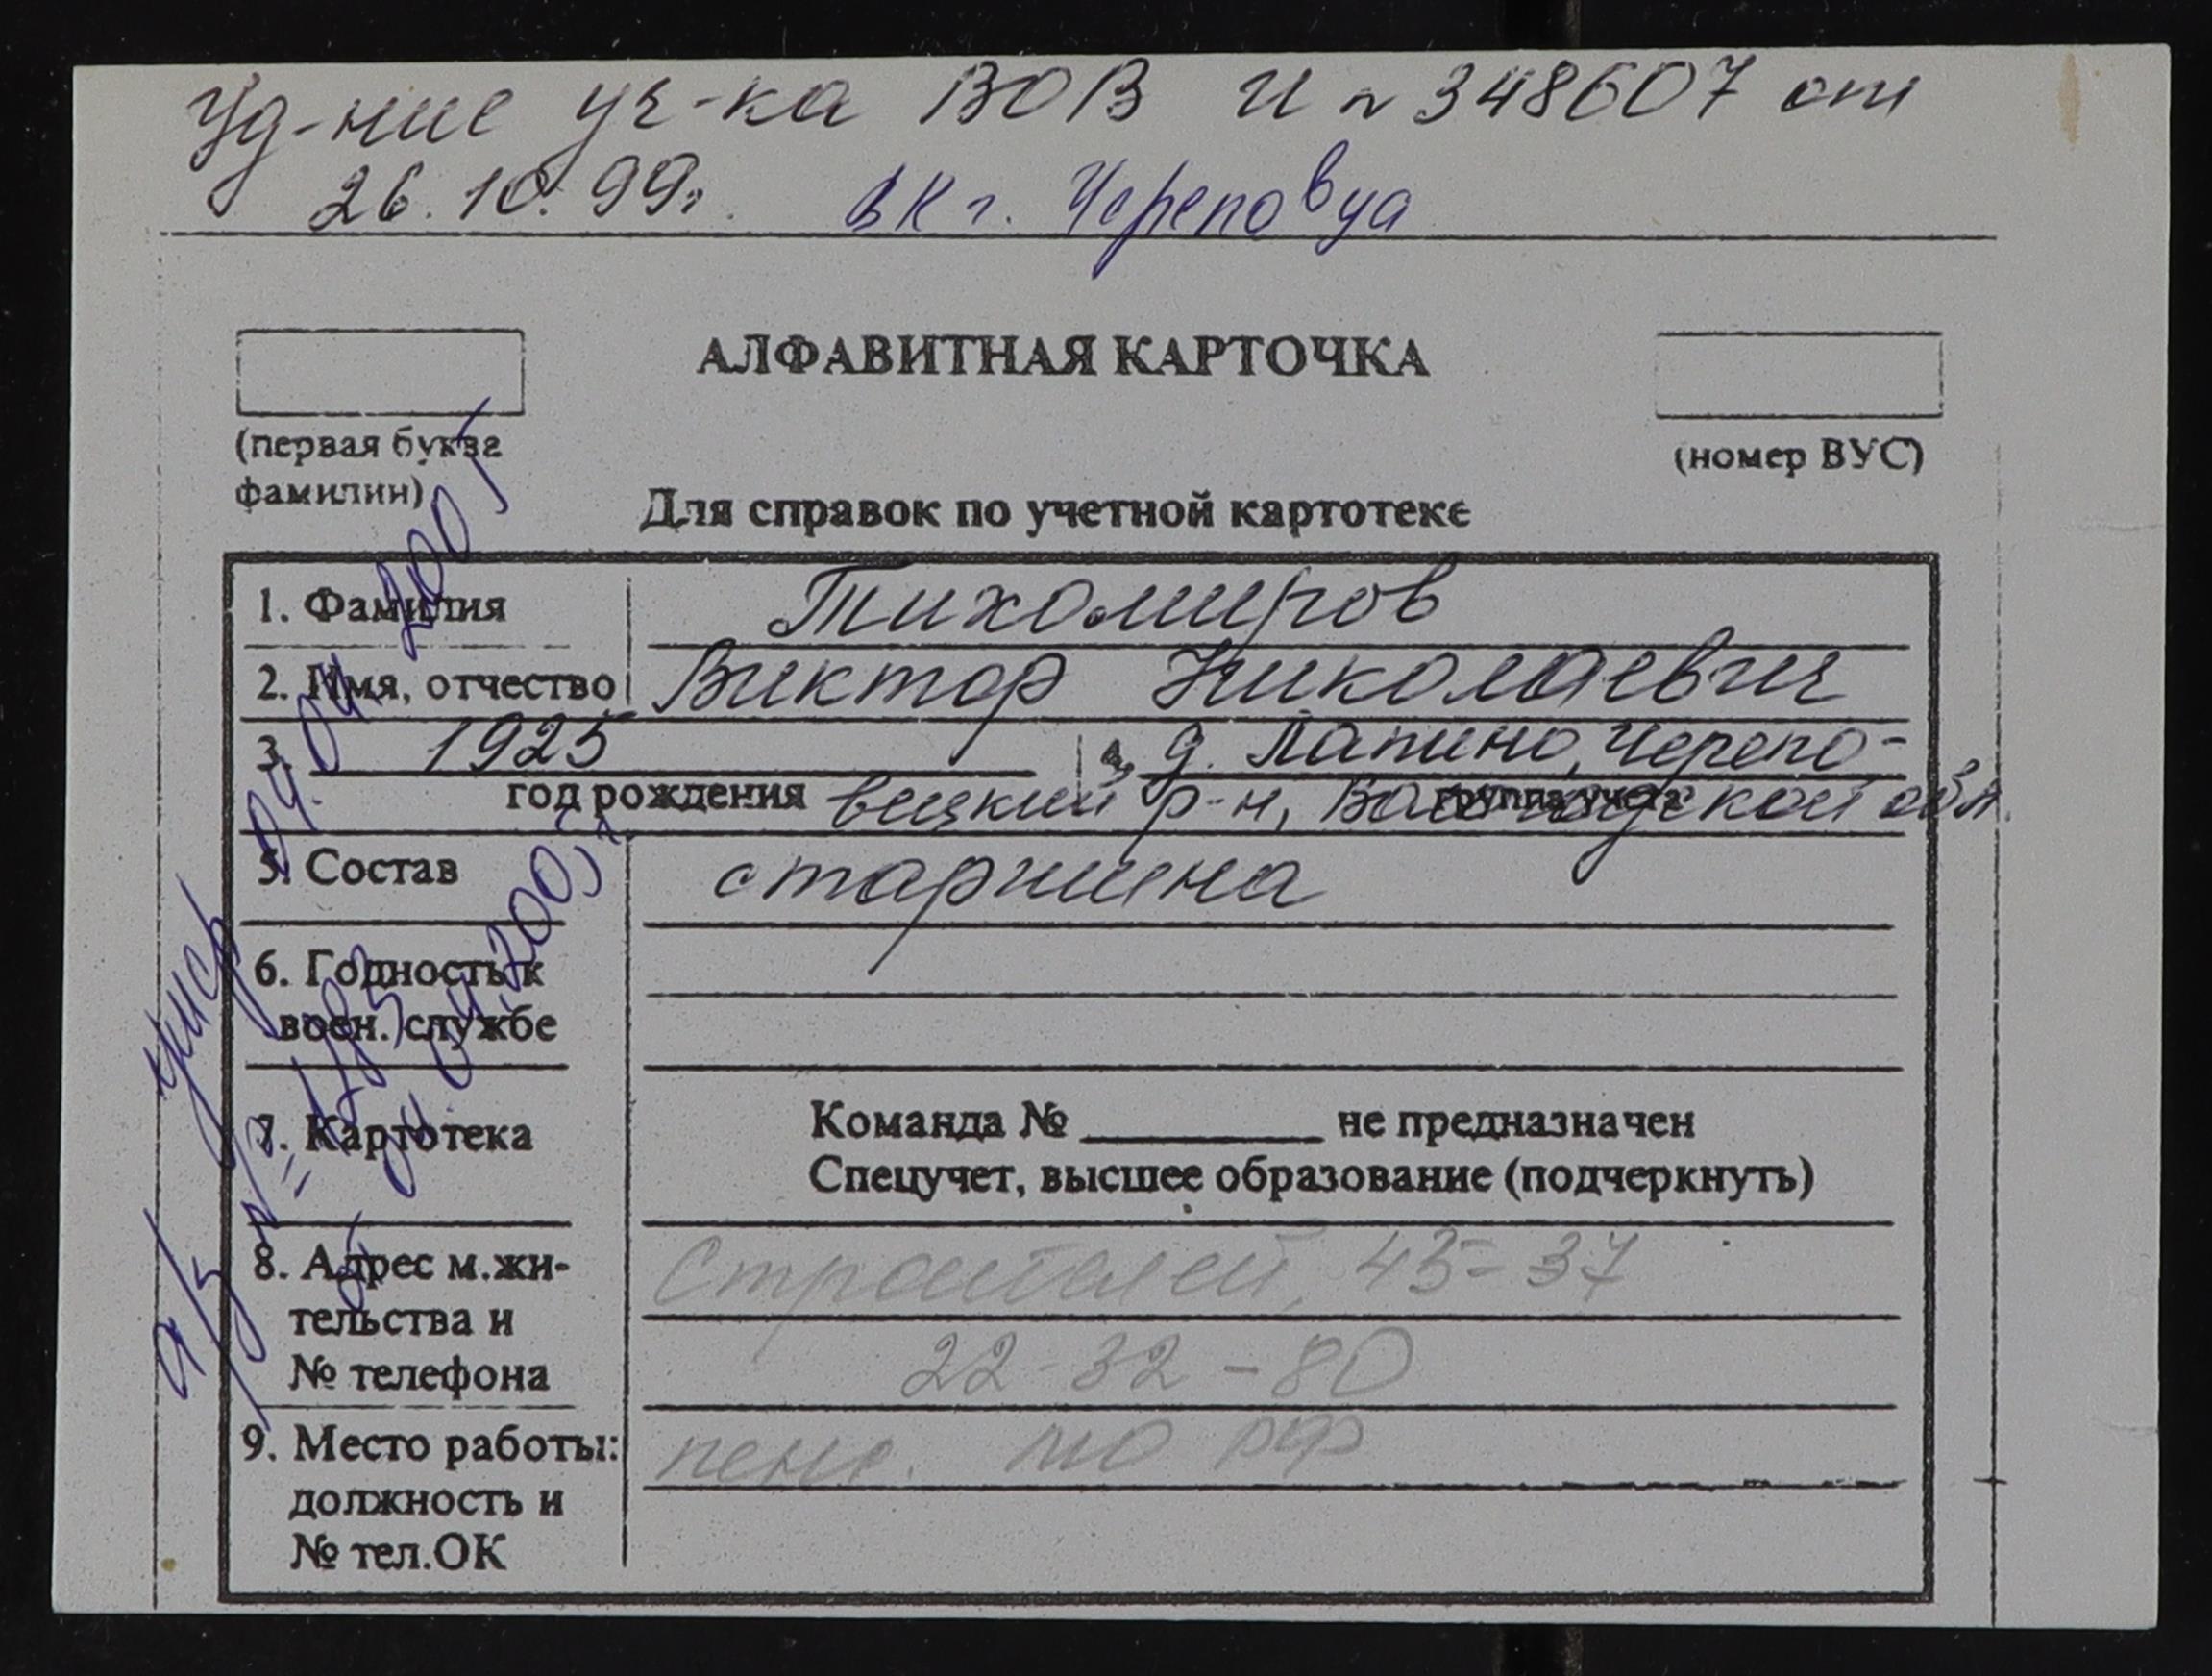 Уд-ние уч-ка ВОВ И № 348607 от
26.10.99г. ВК г. Череповца
АЛФАВИТНАЯ КАРТОЧКА
(первая буква
фамилии)
(номер ВУС)
Для справок по учетной картотеке
1. Фамилия Тихомиров
2. Имя, отчество Виктор Николаевич
3. 1925 д. Лапино, Черепо-
год рождения группа учета
вецкий р-н, Вологодской обл.
5. Состав старшина
6. Годность к
воен. службе
7. Картотека
Команда № не предназначен
Спецучет, высшее образование (подчеркнуть)
8. Адрес м.жи-
тельства и
№ телефона
Строителей, 45-37
22-32-80
9. Место работы:
должность и
№ тел.ОК
пенс. МО РФ
умер 04.04.2005
от 04.2005г